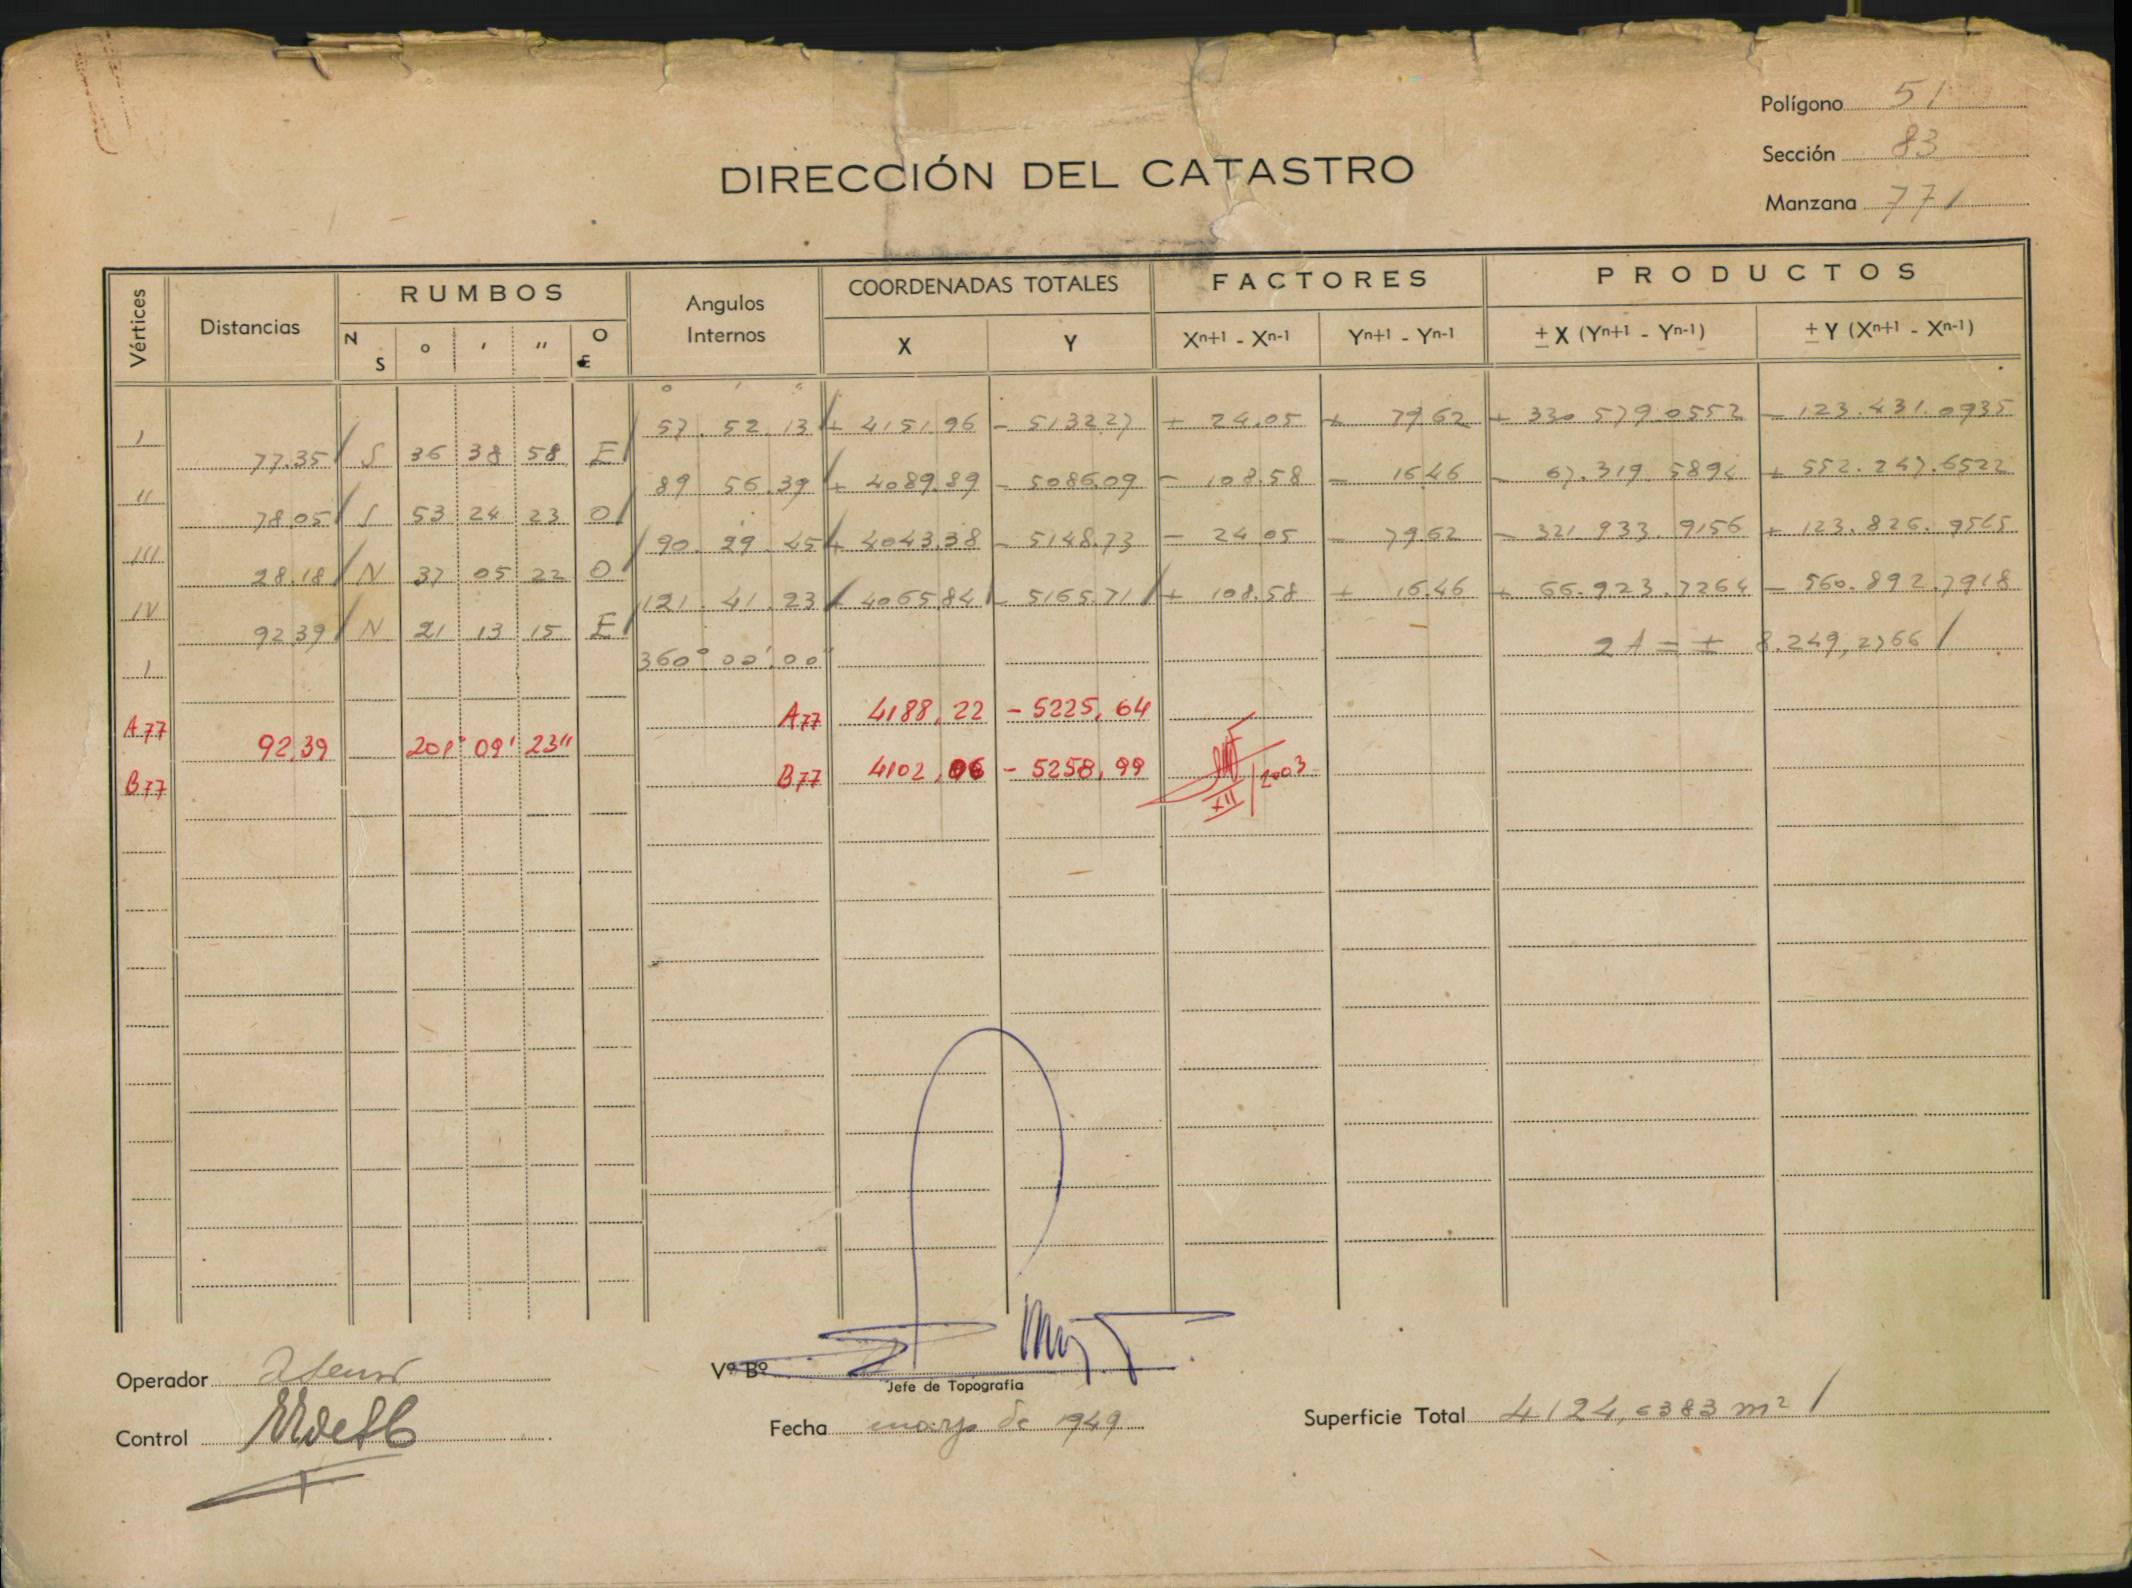 Polígono 51
Sección 83
Manzana 771
DIRECCIÓN DEL CATASTRO
Vértices Distancias RUMBOS Angulos Internos COORDENADAS TOTALES FACTORES PRODUCTOS
N S ° ' " O E X Y Xn+1 - Xn-1 Yn+1 - Yn-1 ± X (Yn+1 - Yn-1) ± Y (Xn+1 - Xn-1)
° ' "
I 57. 52. 13 + 4151.96 - 5132.27 + 24.05 + 79.62 + 330.579.0552 - 123.431.0935
77.35 S 36 38 58 E
II 89 56.39 + 4089.89 - 5086.09 - 108.58 - 16.46 - 67.319.5894 + 552.247.6522
78.05 S 53 24 23 O
III 90. 29. 45 + 4043.38 - 5148.73 - 24.05 - 79.62 - 321.933.9156 + 123.826.9565
28.18 N 37 05 22 O
IV 121. 41. 23 + 4065.84 - 5165.71 + 108.58 + 16.46 + 66.923.7264 - 560.892.7918
92.39 N 21 13 15 E
I 360° 00' 00" 2A = ± 8.249,2766
A77 A77 4188,22 - 5225,64
92,39 201° 09' 23"
B77 B77 4102,06 - 5258,99
XII/2003
Operador
Control
Vº Bº
Jefe de Topografía
Fecha marzo de 1949
Superficie Total 4124,6383 m²